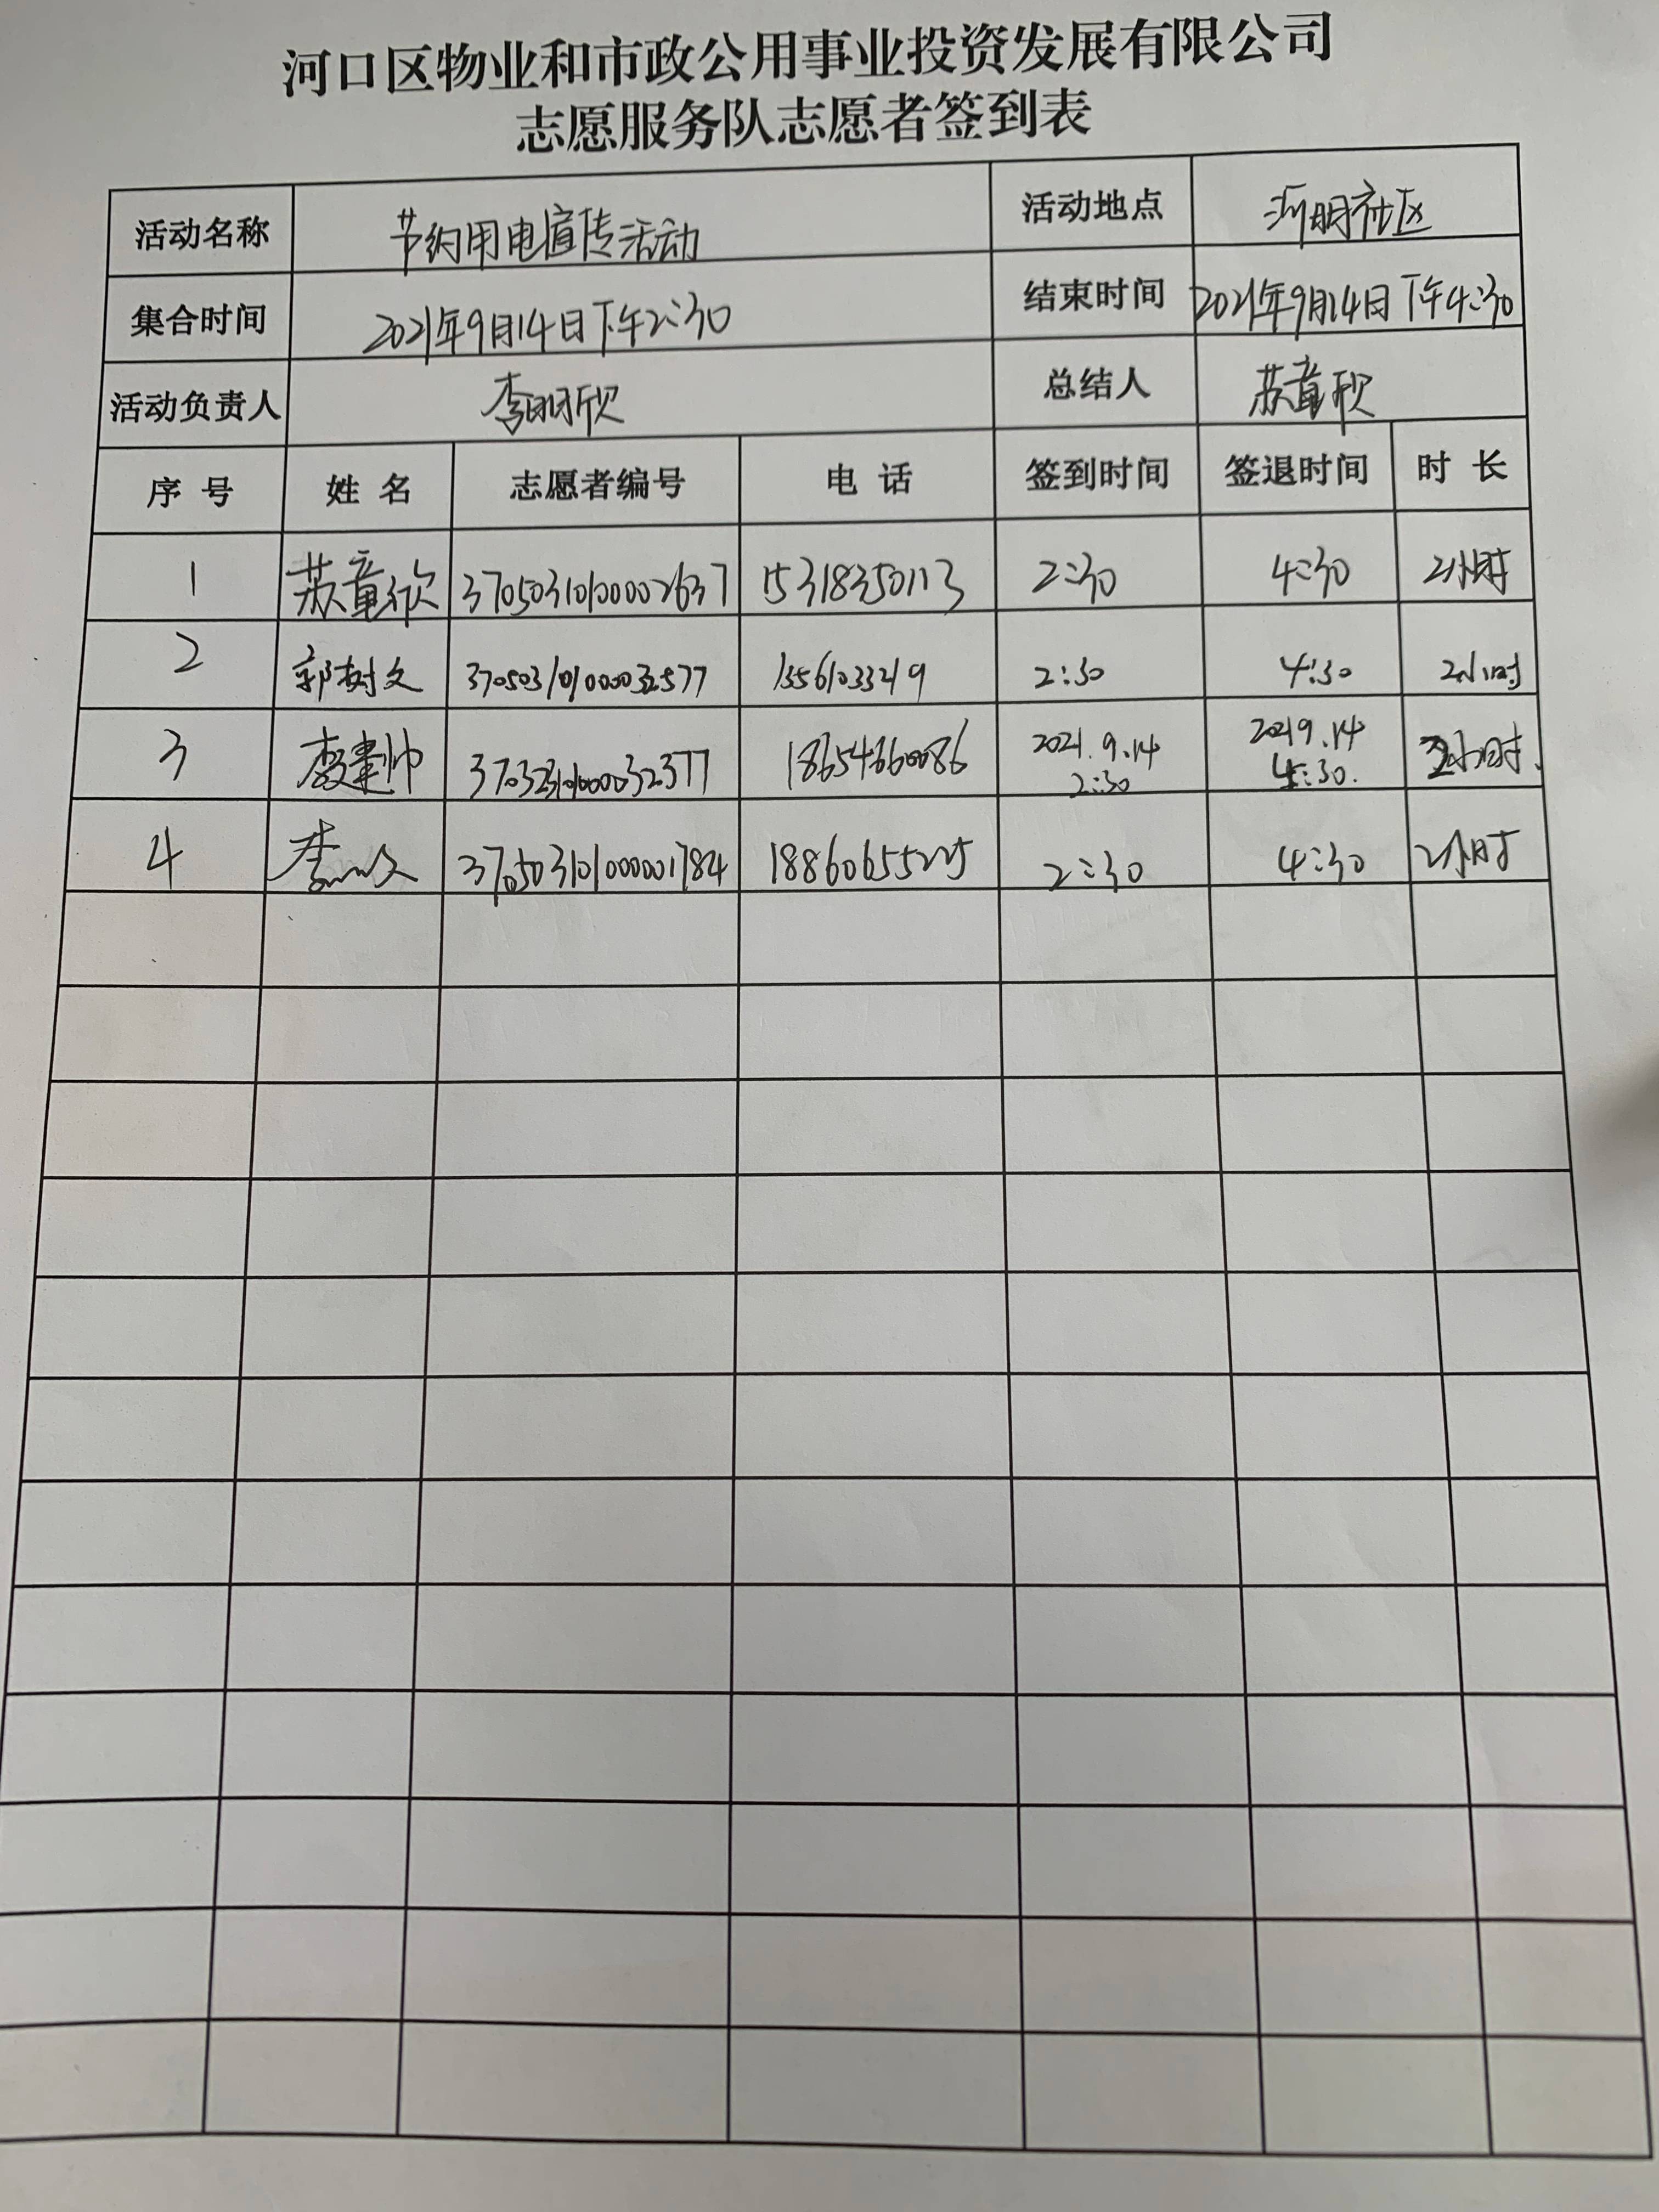 河口区物业和市政公用事业投资发展有限公司
志愿服务队志愿者签到表
活动名称 节约用电宣传活动 活动地点 河明社区
集合时间 2021年9月14日下午2:30 结束时间 2021年9月14日下午4:30
活动负责人 李明欣 总结人 苏童欣
序号 姓名 志愿者编号 电话 签到时间 签退时间 时长
1 苏童欣 37050310100002637 15318350113 2:30 4:30 2小时
2 郭树文 2:30 4:30 2小时
3 李建帅 18654660086 2021.9.14 2:30 2021 9.14 4:30. 2小时.
4 李 370503101000001784 18860655225 2:30 4:30 2小时